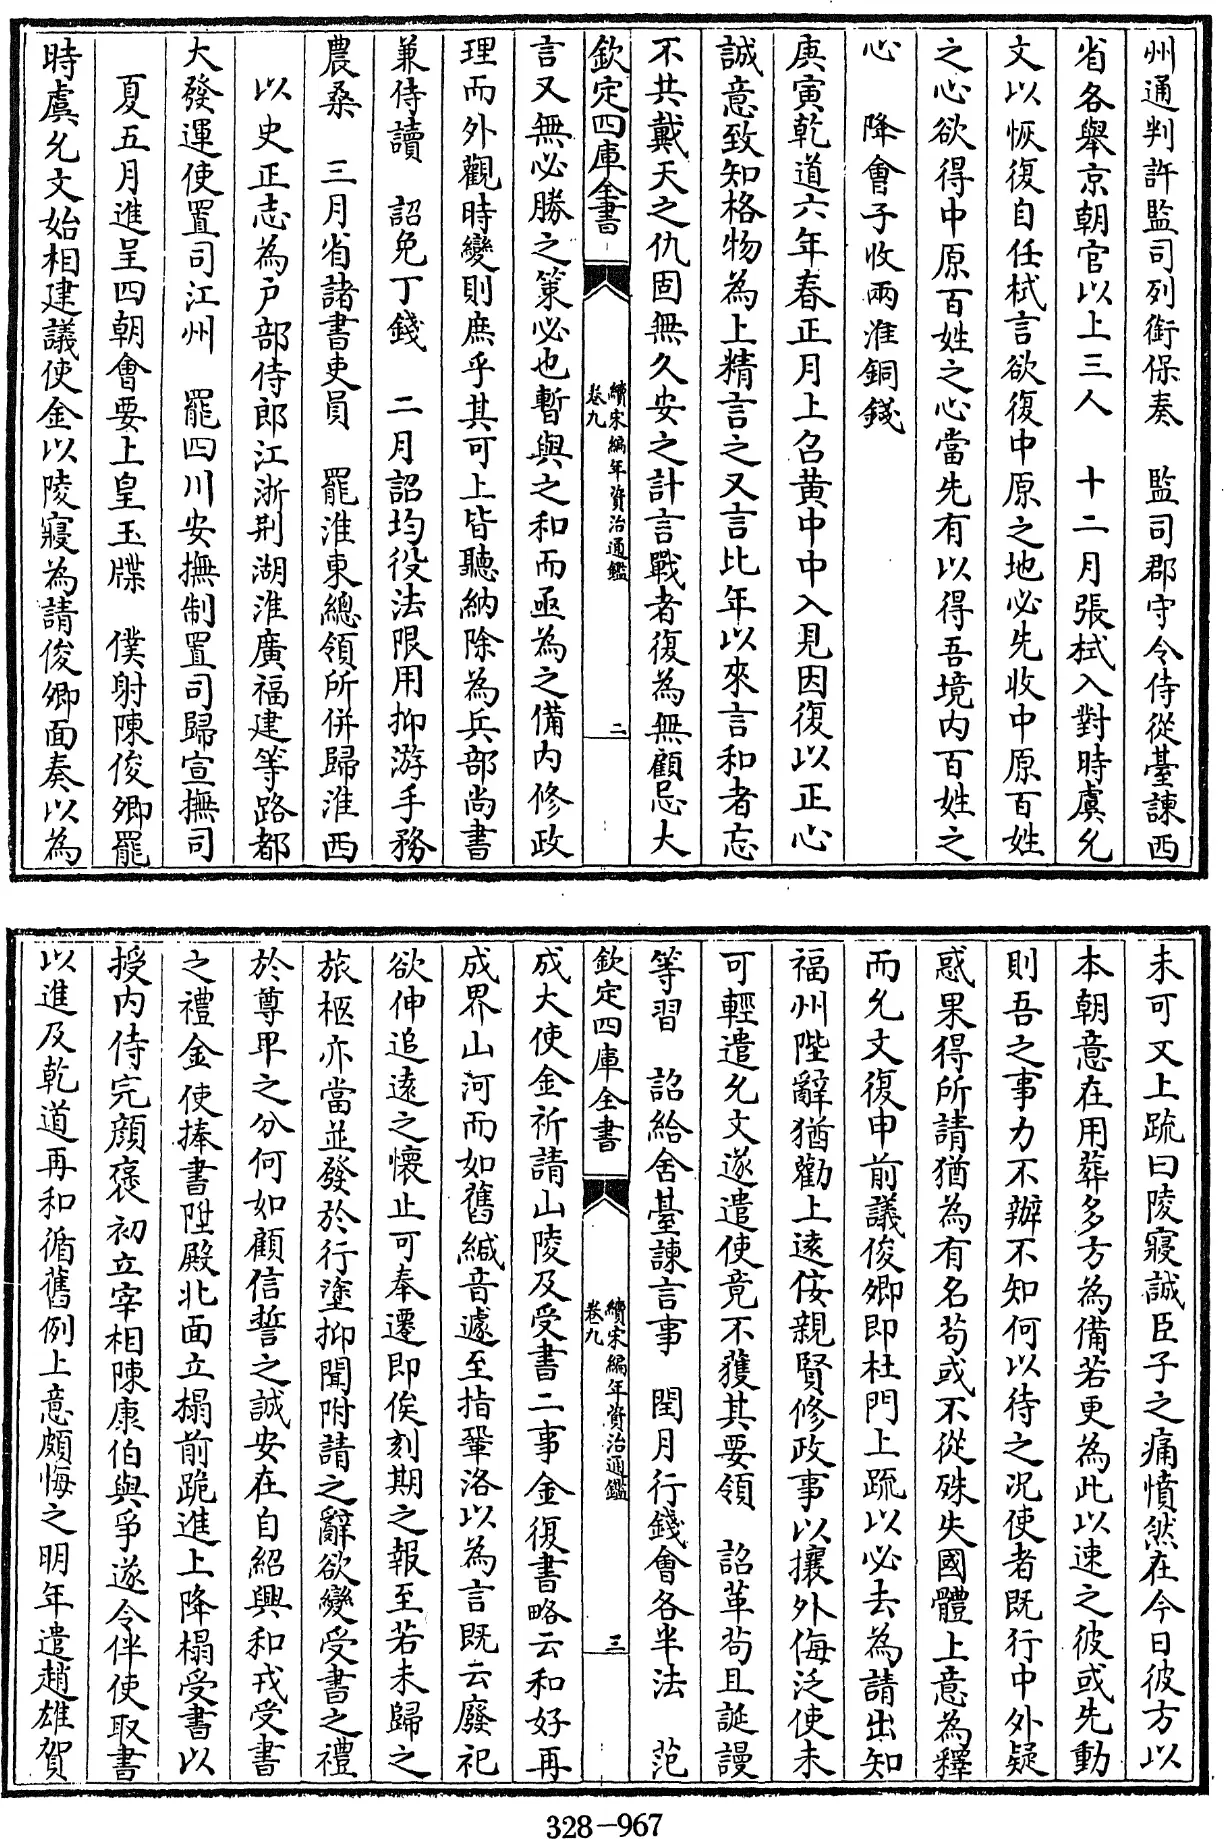 州通判許監司列銜保奏　監司郡守令侍從臺諫西
省各舉京朝官以上三人　十二月張栻入對時虞允
文以恢復自任栻言欲復中原之地必先收中原百姓
之心欲得中原百姓之心當先有以得吾境内百姓之
心　降會子收兩淮銅錢
庚寅乾道六年春正月上召黄中中入見因復以正心
誠意致知格物為上精言之又言比年以來言和者忘
不共戴天之仇固無久安之計言戰者復為無顧忌大
欽定四庫全書
續宋編年資治通鑑
卷九
二
言又無必勝之策必也暫與之和而亟為之備内修政
理而外觀時變則庶乎其可上皆聽納除為兵部尚書
兼侍讀　詔免丁錢　二月詔均役法限用抑游手務
農桑　三月省諸書吏員　罷淮東總領所併歸淮西
以史正志為户部侍郎江浙荆湖淮廣福建等路都
大發運使置司江州　罷四川安撫制置司歸宣撫司
夏五月進呈四朝會要上皇玉牒　僕射陳俊卿罷
時虞允文始相建議使金以陵寢為請俊卿面奏以為
未可又上疏曰陵寢誠臣子之痛憤然在今日彼方以
本朝意在用葬多方為備若更為此以速之彼或先動
則吾之事力不辦不知何以待之况使者既行中外疑
惑果得所請猶為有名茍或不從殊失國體上意為釋
而允文復申前議俊卿即杜門上疏以必去為請出知
福州陛辭猶勸上遠佞親賢修政事以攘外侮泛使未
可輕遣允文遂遣使竟不獲其要領　詔革茍且誕謾
等習　詔給舍臺諫言事　閏月行錢會各半法　范
欽定四庫全書
續宋編年資治通鑑
卷九
三
成大使金祈請山陵及受書二事金復書略云和好再
成界山河而如舊緘音遽至指鞏洛以為言既云廢祀
欲伸追遠之懷止可奉遷即俟刻期之報至若未歸之
旅柩亦當並發於行塗抑聞附請之辭欲變受書之禮
於尊卑之分何如顧信誓之誠安在自紹興和戎受書
之禮金使捧書陞殿北面立榻前跪進上降榻受書以
授内侍完顔褎初立宰相陳康伯與爭遂令伴使取書
以進及乾道再和循舊例上意頗悔之明年遣趙雄賀
328-967